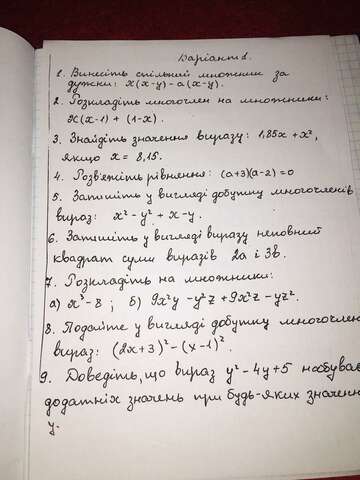 Варіант 1.
1. Винесіть спільний множник за
дужки: x(x-y) - a(x-y).
2. Розкладіть многочлен на множники:
x(x-1) + (1-x).
3. Знайдіть значення виразу: 1,85x + x²,
якщо x = 8,15.
4. Розв'яжіть рівняння: (a+3)(a-2) = 0
5. Запишіть у вигляді добутку многочленів
вираз: x² - y² + x - y.
6. Запишіть у вигляді виразу неповний
квадрат суми виразів 2a і 3b.
7. Розкладіть на множники:
а) x³ - 8; б) 9x²y - y²z + 9x²z - yz².
8. Подайте у вигляді добутку многочлен
вираз: (2x+3)² - (x-1)².
9. Доведіть, що вираз y² - 4y + 5 набуває
додатніх значень при будь-яких значенн
y.